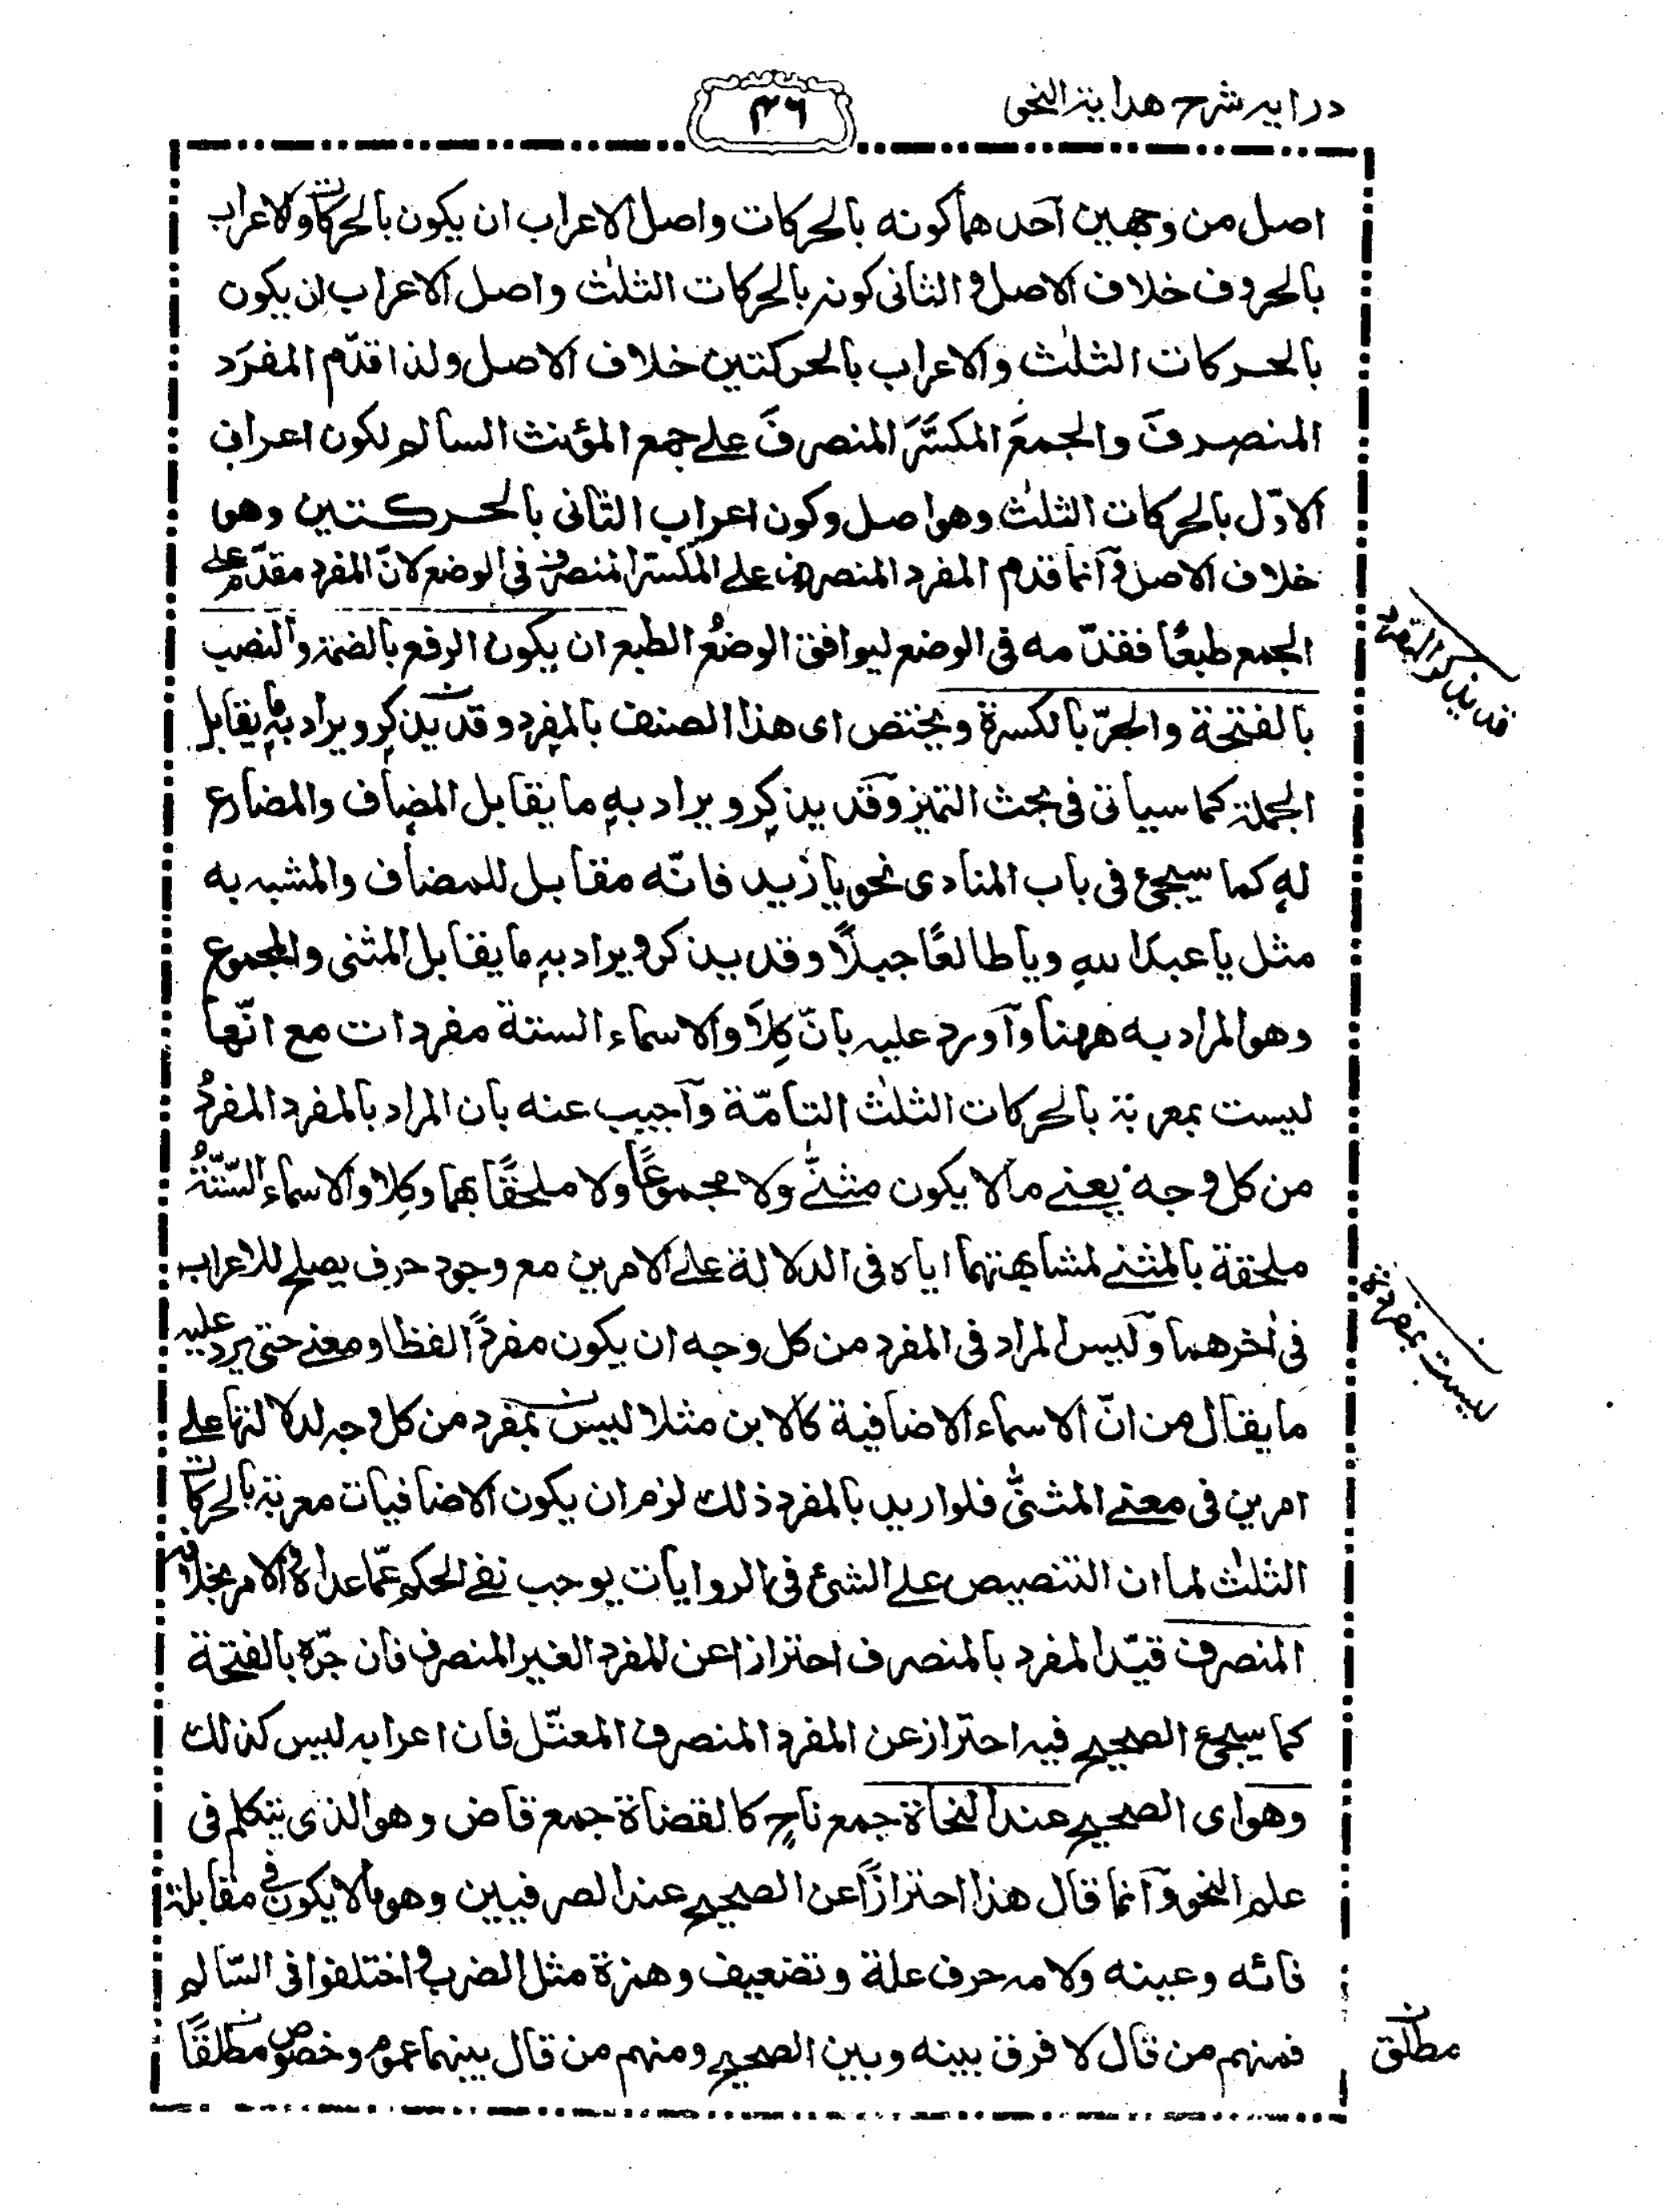 درايه شرح هداية النحو
٤٦
اصل من وجهين آحدهما كونه بالحركات واصل الاعراب ان يكون بالحركات والاعراب
بالحروف خلاف الاصل و الثانى كونه بالحركات الثلٰث واصل الاعراب ان يكون
بالحركات الثلٰث والاعراب بالحركتين خلاف الاصل ولذا قدّم المفرَد
المنصرفَ والجمعَ المكسَّرَ المنصرفَ علے جمع المؤنث السالم لكون اعراب
الاوّل بالحركات الثلٰث وهو اصل وكون اعراب الثانى بالحركتين وهو
خلاف الاصل وآنما قدم المفرد المنصرف علے المكسر المنصرف فى الوضع لانّ المفرد مقدّم علے
الجمع طبعًا فقدّمه فى الوضع ليوافق الوضعُ الطبع ان يكون الرفع بالضمة والنصب
بالفتحة والجرّ بالكسرة ويختص اى هذا الصنف بالمفرد وقد يذكر ويراد به ما يقابل
الجملة كما سياتى فى بحث التميز وقد يذكر ويراد بهٖ ما يقابل المضاف والمضارع
لهٖ كما سيجئ فى باب المنادى نحو يا زيد فانّه مقابل للمضاف والمشبه به
مثل يا عبدَ اللهِ ويا طالعًا جبلًا وقد يذكر ويراد بهٖ ما يقابل المثنى والمجموع
وهو المراد به ههنا وآورد عليه بانّ كِلَا والاسماء الستة مفردات مع انّها
ليست بمعربة بالحركات الثلٰث التامّة وآجيب عنه بان المراد بالمفرد المفردُ
من كل وجه يعنے ما لا يكون مثنےًّ ولا مجموعًا ولا ملحقًا بهما وكِلا والاسماء السّتّةُ
ملحقة بالمثنے لمشابهتهما اياه فى الدلالة علے الامرين مع وجود حرف يصلح للاعراب
فى اٰخرهما وليس المراد فى المفرد من كل وجه ان يكون مفردًا لفظا ومعنے حتى يرد عليه
ما يقال من انّ الاسماء الاضافية كالابن مثلا ليس بمفرد من كل وجه لدلالتها علے
امرين فى معنے المثنّٰى فلو اريد بالمفرد ذلك لزم ان يكون الاضافيات معربة بالحركات
الثلٰث لما ان التنصيص علے الشئ فى الروايات يوجب نفے الحكم عمّا عداه والامر بخلافه
المنصرف قيّد المفرد بالمنصرف احترازا عن المفرد الغير المنصرف فان جرّه بالفتحة
كما سيجئ الصحيح فيه احتراز عن المفرد المنصرف المعتّل فان اعرابه ليس كذلك
وهو اى الصحيح عند النحاة جمع ناحٍ كالقضاة جمع قاض وهو الذى يتكلم فى
علم النحو وآنما قال هذا احترازًا عن الصحيح عند الصرفيين وهو ما لا يكون فى مقابلة
فائه وعينه ولامه حرف علة وتضعيف وهمزة مثل الضرب واختلفوا فى السّالم
فمنهم من قال لا فرق بينه وبين الصحيح ومنهم من قال بينهما عموم وخصوص مطلقًا
ليست بمفردة
مطلق